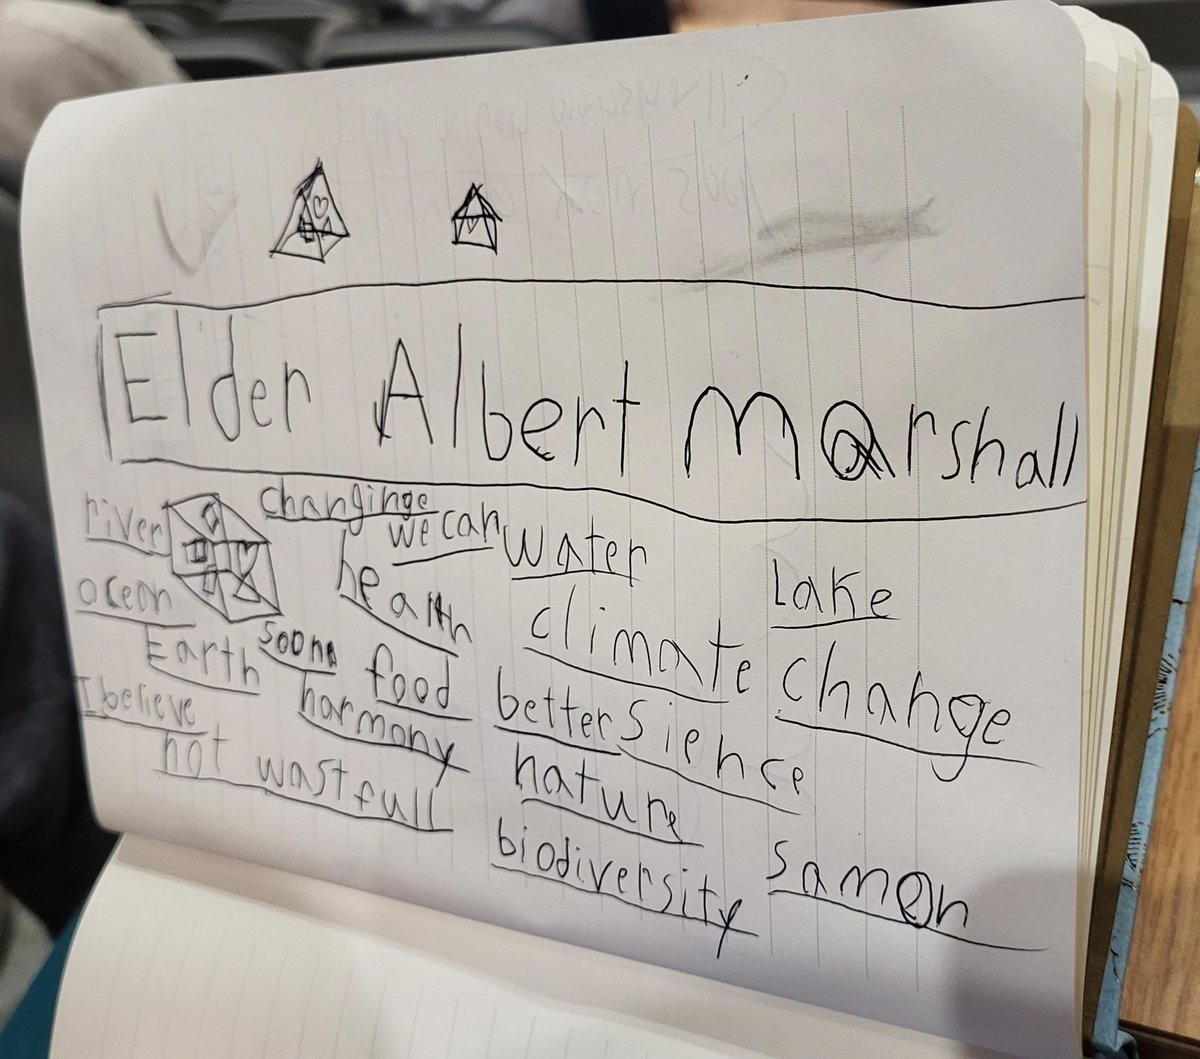 Elder Albert Marshall
river
changinge
we can
water
Lake
ocean
health
climate
change
Earth
soon
food
I believe
harmony
better
Sience
not wastfull
nature
biodiversity
samon